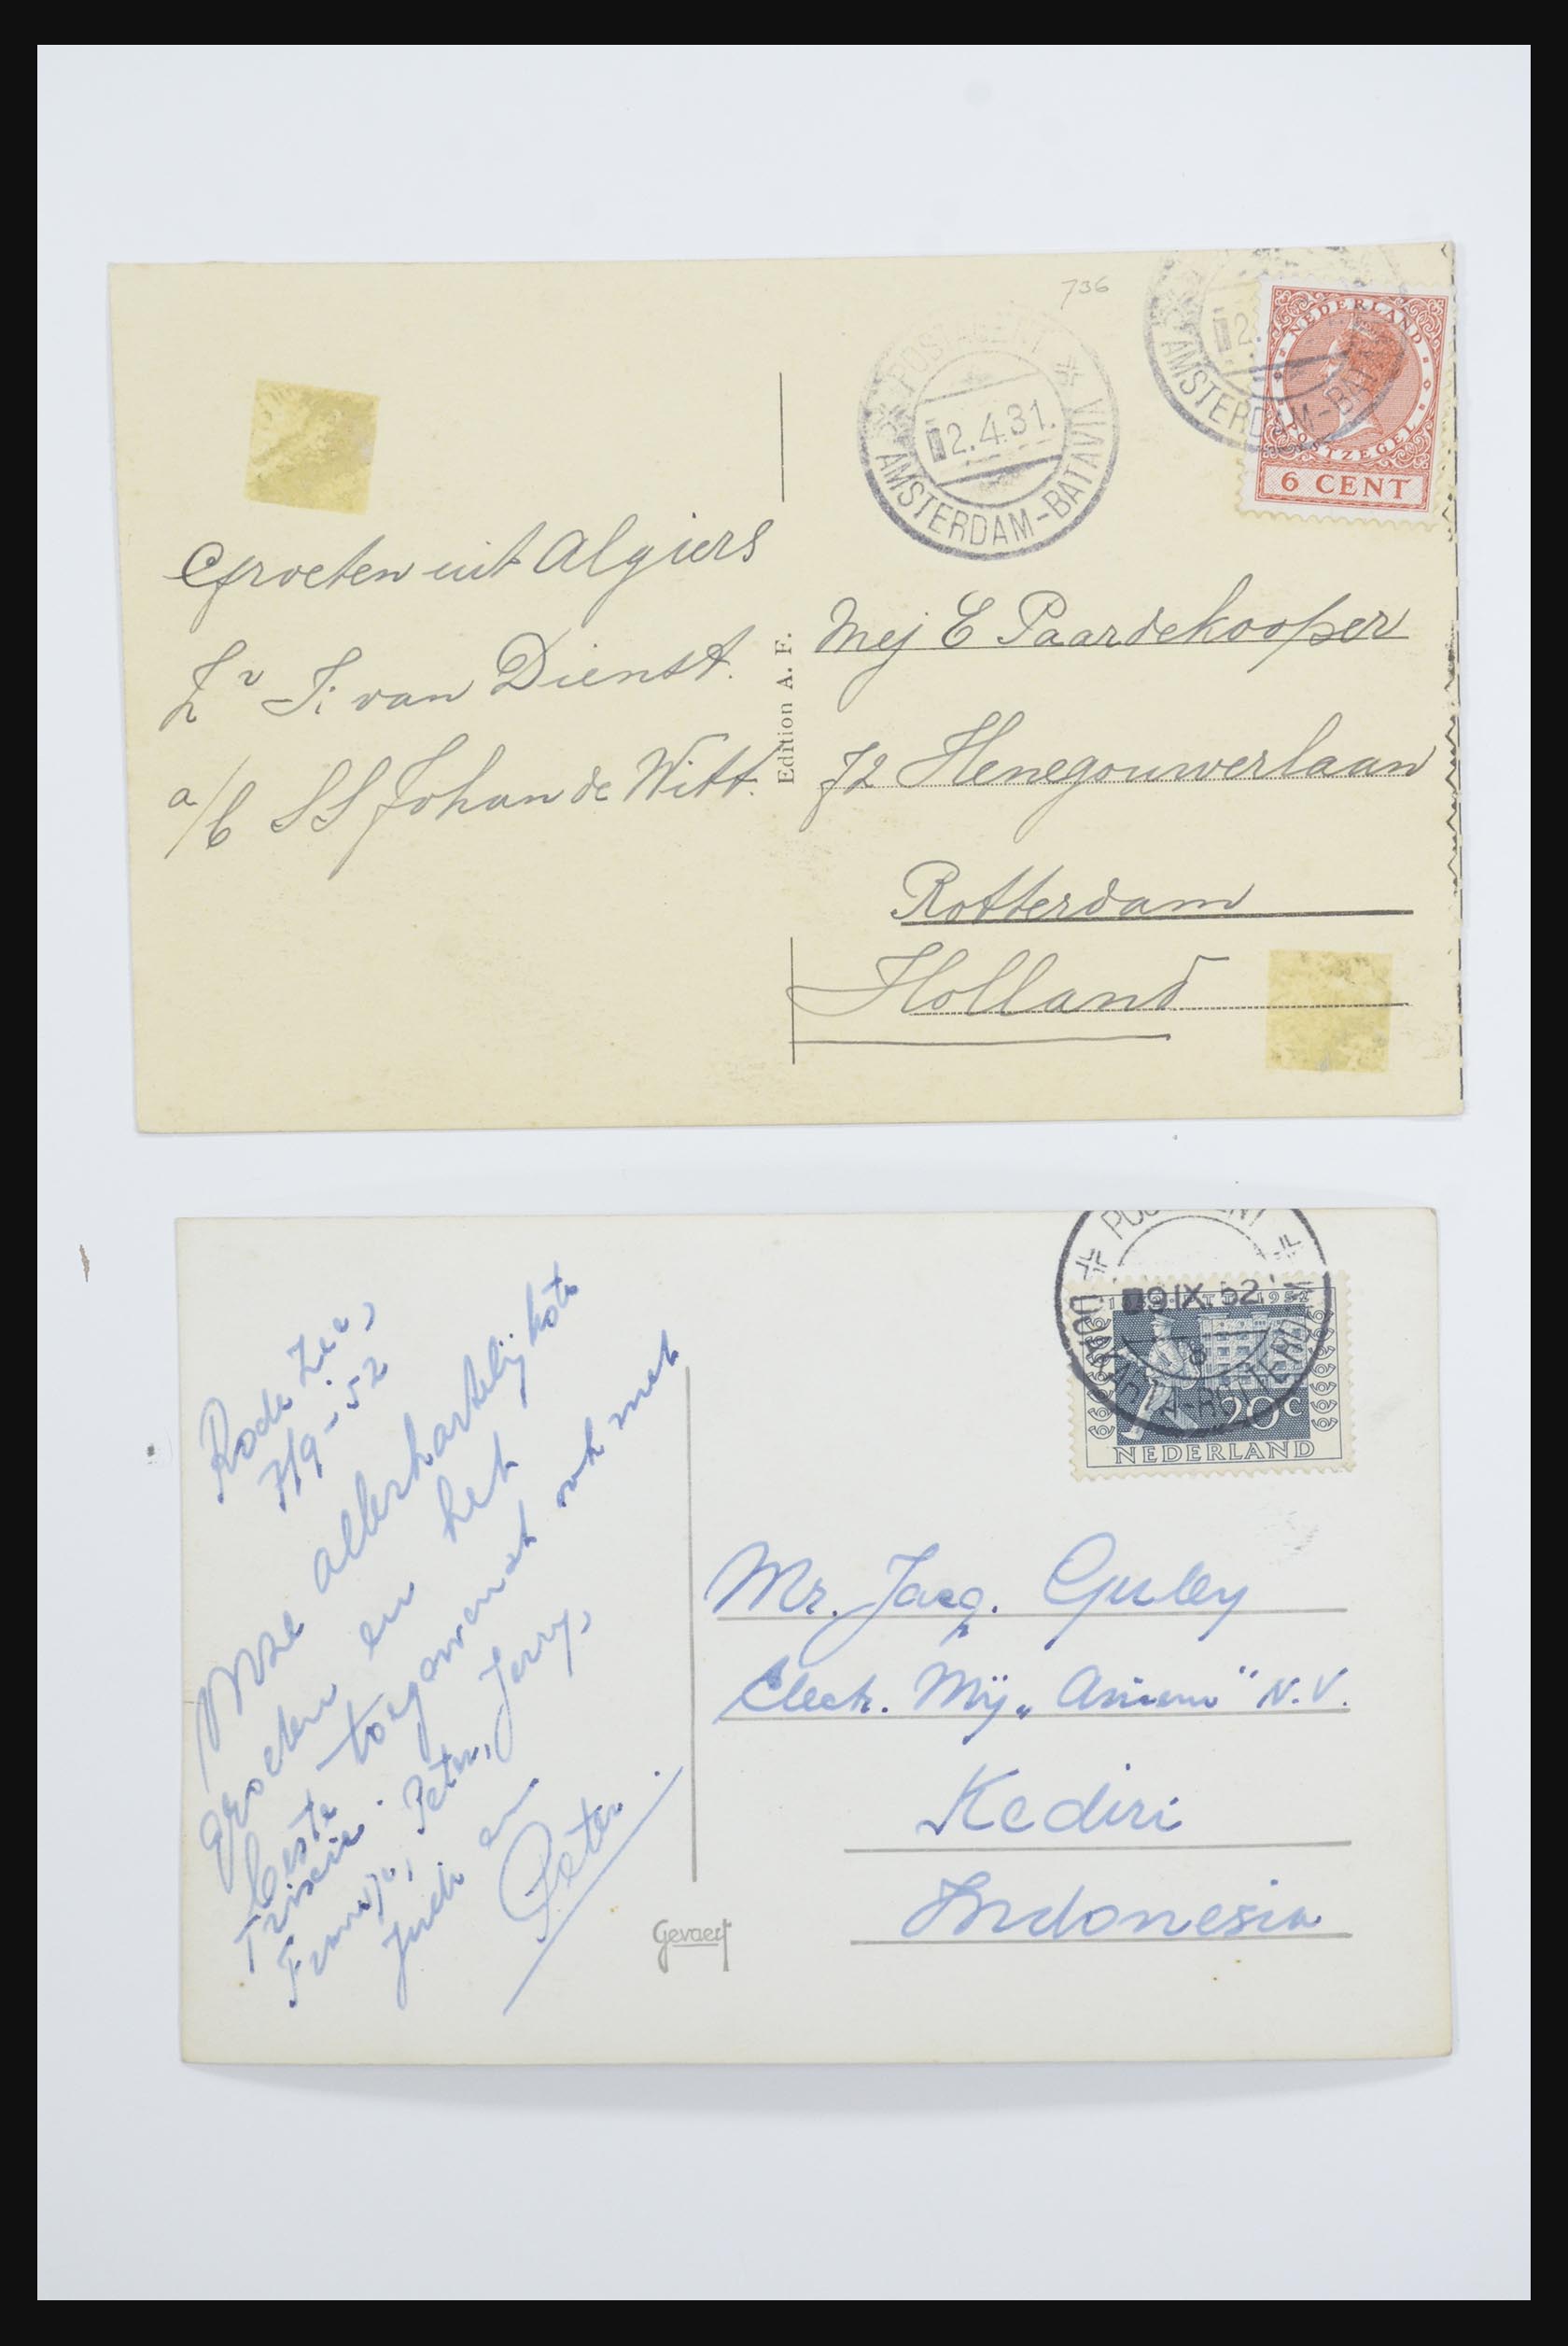 736
POSTAGENT
2.4.31.
AMSTERDAM-BATAVIA
2.
AMSTERDAM-BATAVIA
NEDERLAND
POSTZEGEL
6 CENT
Groeten uit Algiers
v. van Dienst.
a/b SS Johan de Witt.
Edition A. F.
Mej E Paardekooper
72 Henegouwerlaan
Rotterdam
Holland
POSTAGENT
9 IX. 52
8
DJAKARTA-ROTTERDAM
1852 PTT 1952
20c
NEDERLAND
Rode Zee,
7/9-'52
Onze allerhartelijkste
groeten en het
beste toegewenst ook met
Peter, Jerry,
en
Peter.
Gevaert
Mr. Jacq.
Electr. Mij „Aniem" N.V.
Kediri
Indonesia